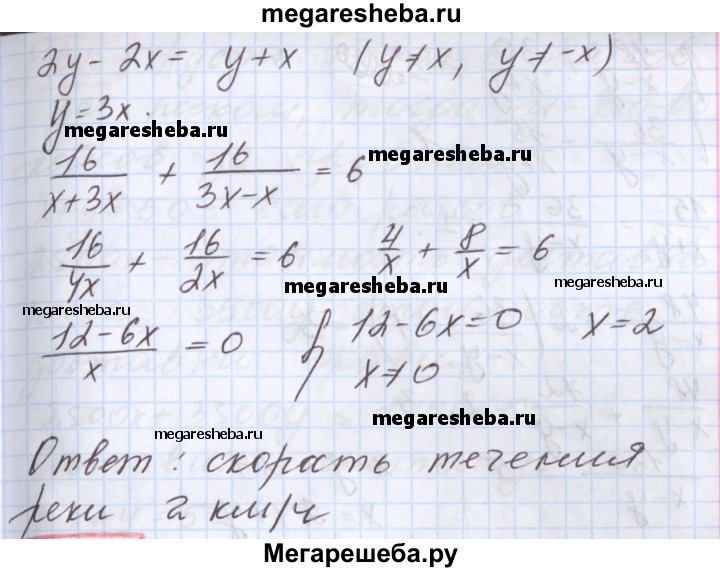 megaresheba.ru
2y - 2x = y + x (y ≠ x, y ≠ -x)
y = 3x.
megaresheba.ru
16/(x+3x) + 16/(3x-x) = 6
megaresheba.ru
16/4x + 16/2x = 6 4/x + 8/x = 6
megaresheba.ru
megaresheba.ru
megaresheba.ru
(12-6x)/x = 0 { 12-6x=0 x=2
x ≠ 0
megaresheba.ru
megaresheba.ru
Ответ: скорасть течения
реки 2 км/ч.
megaresheba.ru
megaresheba.ru
Мегарешеба.ру